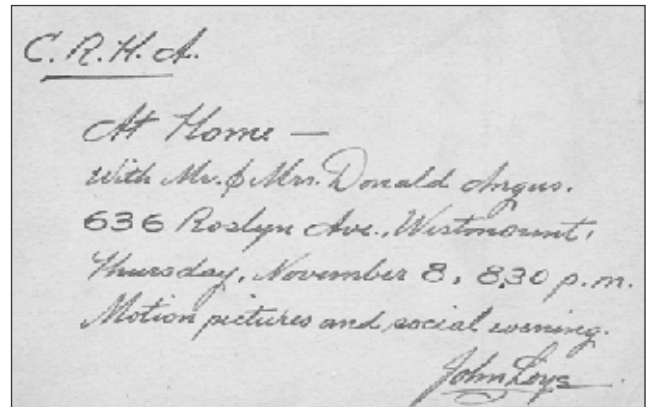 C. R. H. A.
At Home —
With Mr. & Mrs. Donald Angus.
636 Roslyn Ave., Westmount,
Thursday, November 8, 8.30 p.m.
Motion pictures and social evening.
John Loye